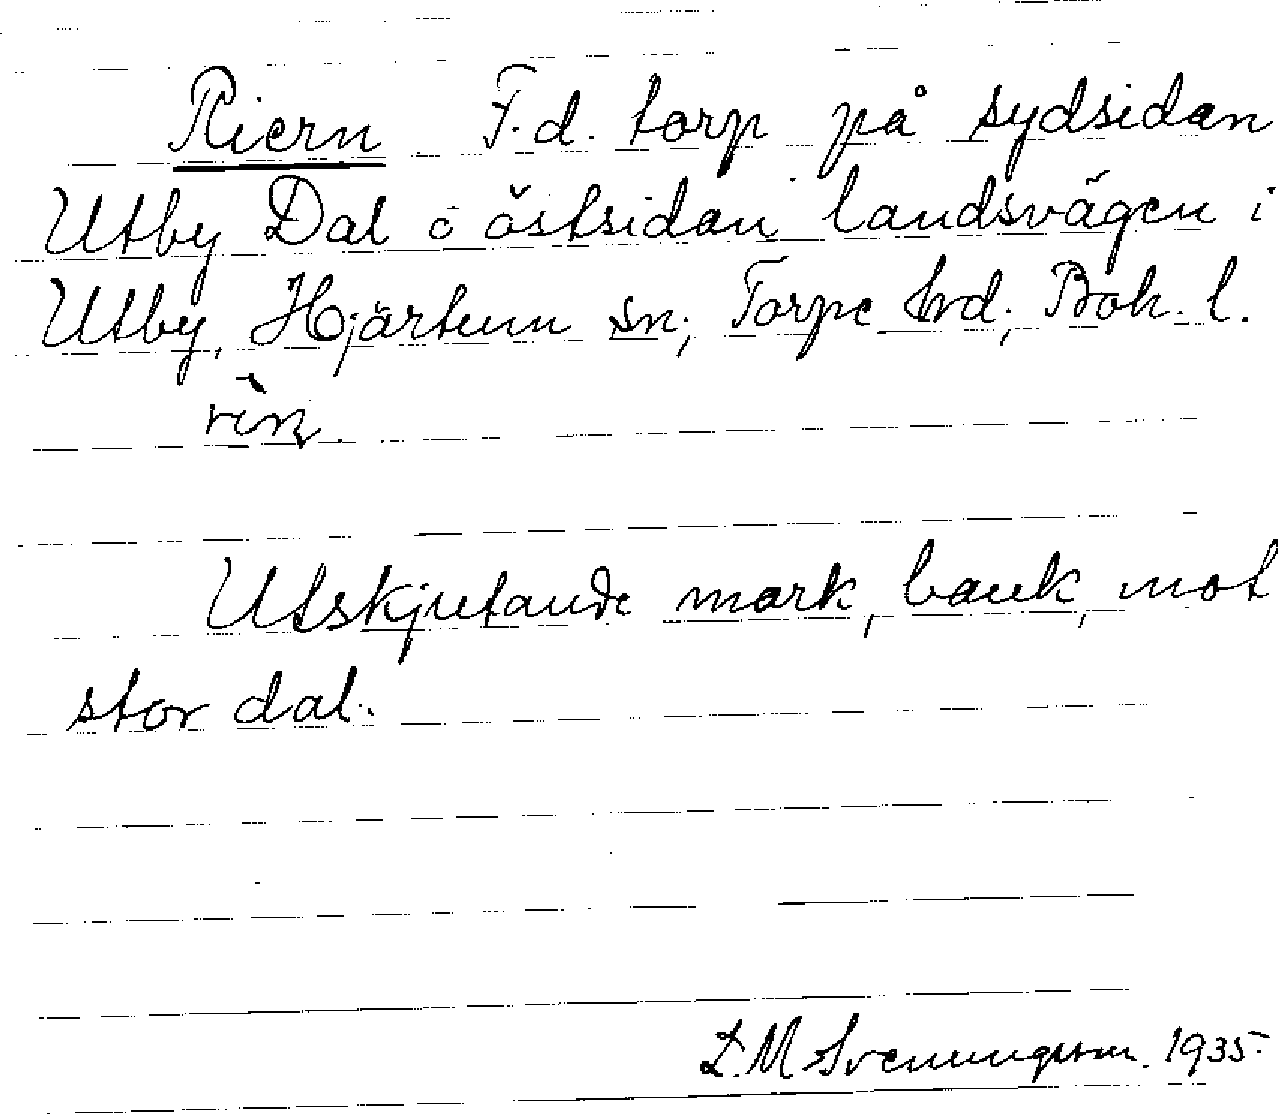 Riern F. d. torp på sydsidan
Utby Dal o östsidan landsvägen i
Utby, Hjärtum sn; Torpe hrd; Boh. l.
Utskjutande mark, bank, mot
stor dal.
L. M Svenungsson. 1935.